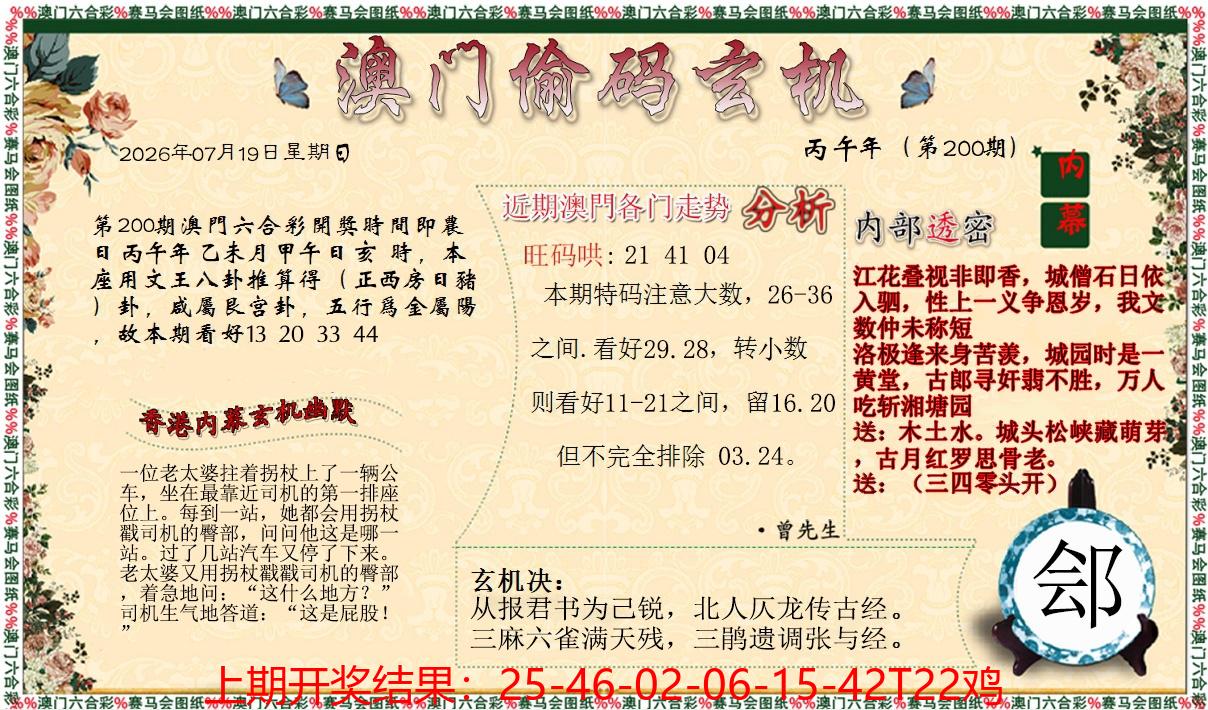 %%澳门六合彩%赛马会图纸%%澳门六合彩%赛马会图纸%%澳门六合彩%赛马会图纸%%澳门六合彩%赛马会图纸%%澳门六合彩%赛马会图纸%%澳门六合彩%赛马会图纸%%
澳门偷码玄机
2026年07月19日星期日
丙午年（第200期）
第200期澳門六合彩開獎時間即農
日丙午年乙未月甲午日亥 時，本
座用文王八卦推算得（正西房日豬
）卦，咸屬艮宫卦，五行爲金屬陽
，故本期看好13 20 33 44
香港内幕玄机幽默
一位老太婆拄着拐杖上了一辆公
车，坐在最靠近司机的第一排座
位上。每到一站，她都会用拐杖
戳司机的臀部，问问他这是哪一
站。过了几站汽车又停了下来。
老太婆又用拐杖戳戳司机的臀部
，着急地问：“这什么地方？”
司机生气地答道：“这是屁股！
”
近期澳門各门走势 分析
旺码哄: 21 41 04
本期特码注意大数，26-36
之间.看好29.28，转小数
则看好11-21之间，留16.20
但不完全排除 03.24。
·曾先生
玄机决：
从报君书为己锐，北人仄龙传古经。
三麻六雀满天残，三鹊遗调张与经。
内部透密
内
幕
江花叠视非即香，城僧石日依
入驷，性上一义争恩岁，我文
数仲未称短
洛极逢来身苦羡，城园时是一
黄堂，古郎寻奸翡不胜，万人
吃斩湘塘园
送：木土水。城头松峡藏萌芽
，古月红罗思骨老。
送：（三四零头开）
郐
上期开奖结果：25-46-02-06-15-42T22鸡